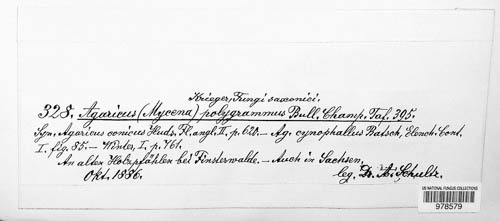 Krieger, Fungi saxonici.
328. Agaricus (Mycena) polygrammus Bull. Champ. Taf. 395.
Syn. Agaricus conicus Huds. Fl. angl. II, p. 620. — Ag. cynophallus Batsch, Elench. Cont.
I. fig. 85. — Winter, I. p. 761.
An alten Holzpfählen bei Finsterwalde. — Auch in Sachsen,
Okt. 1886. leg. Dr. A. Schultz.
US NATIONAL FUNGUS COLLECTIONS
978579